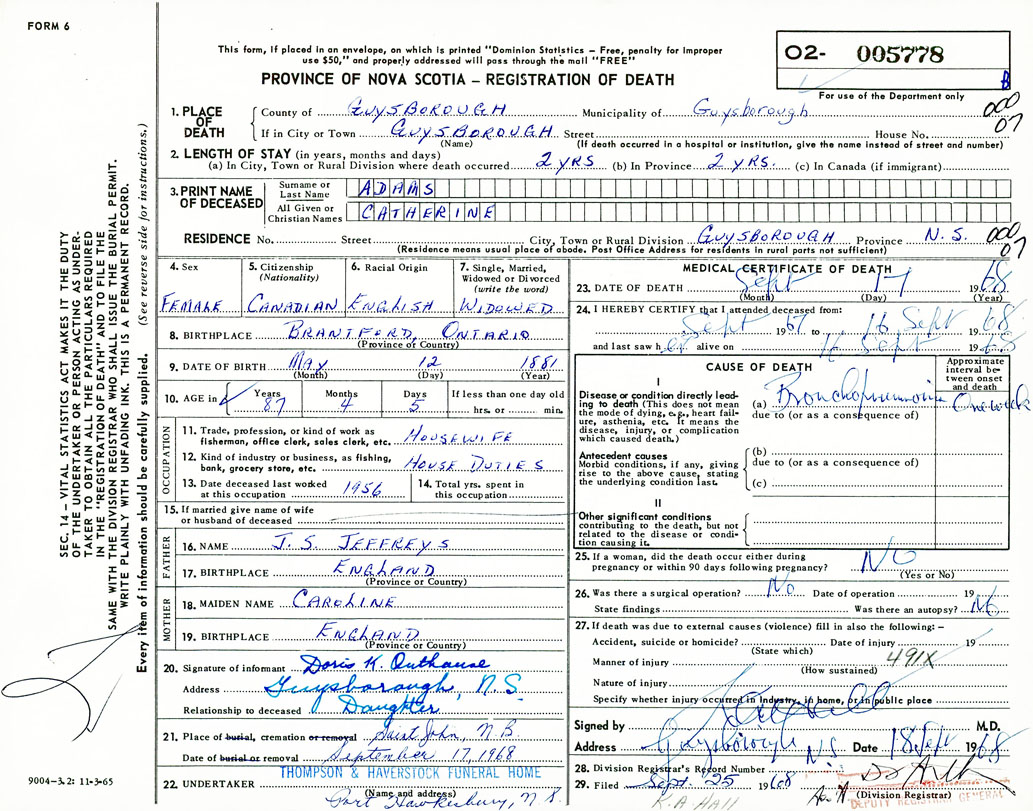 FORM 6
This form, if placed in an envelope, on which is printed "Dominion Statistics – Free, penalty for improper
use $50," and properly addressed will pass through the mail "FREE"
PROVINCE OF NOVA SCOTIA – REGISTRATION OF DEATH
02- 005778
B
For use of the Department only
000
07
1. PLACE OF DEATH County of GUYSBOROUGH Municipality of Guysborough
If in City or Town GUYSBOROUGH Street House No.
(Name) (If death occurred in a hospital or institution, give the name instead of street and number)
2. LENGTH OF STAY (in years, months and days)
(a) In City, Town or Rural Division where death occurred 2 YRS (b) In Province 2 YRS. (c) In Canada (if immigrant)
3. PRINT NAME OF DECEASED
Surname or Last Name ADAMS
All Given or Christian Names CATHERINE
RESIDENCE No. Street City, Town or Rural Division GUYSBOROUGH Province N.S.
(Residence means usual place of abode. Post Office Address for residents in rural parts not sufficient)
000
07
4. Sex FEMALE
5. Citizenship (Nationality) CANADIAN
6. Racial Origin ENGLISH
7. Single, Married, Widowed or Divorced (write the word) WIDOWED
8. BIRTHPLACE BRANTFORD, ONTARIO
(Province or Country)
9. DATE OF BIRTH MAY 12 1881
(Month) (Day) (Year)
10. AGE in Years 87 Months 4 Days 5 If less than one day old hrs. or min.
OCCUPATION
11. Trade, profession, or kind of work as fisherman, office clerk, sales clerk, etc. HOUSEWIFE
12. Kind of industry or business, as fishing, bank, grocery store, etc. HOUSE DUTIES
13. Date deceased last worked at this occupation 1956
14. Total yrs. spent in this occupation
15. If married give name of wife or husband of deceased
FATHER
16. NAME J. S. JEFFREYS
17. BIRTHPLACE ENGLAND
(Province or Country)
MOTHER
18. MAIDEN NAME CAROLINE
19. BIRTHPLACE ENGLAND
(Province or Country)
20. Signature of informant Doris K. Outhouse
Address Guysborough, N.S.
Relationship to deceased Daughter
21. Place of burial, cremation or removal Saint John, N.B.
Date of burial or removal September 17, 1968
THOMPSON & HAVERSTOCK FUNERAL HOME
22. UNDERTAKER
(Name and address)
Port Hawkesbury, N.S.
MEDICAL CERTIFICATE OF DEATH
23. DATE OF DEATH Sept 17 1968
(Month) (Day) (Year)
24. I HEREBY CERTIFY that I attended deceased from:
Sept 1967 to 16 Sept 1968
and last saw her alive on 16 Sept 1968
CAUSE OF DEATH
Approximate interval between onset and death
I
Disease or condition directly leading to death (This does not mean the mode of dying, e.g., heart failure, asthenia, etc. It means the disease, injury, or complication which caused death.)
(a) Bronchopneumonia One week
due to (or as a consequence of)
Antecedent causes
Morbid conditions, if any, giving rise to the above cause, stating the underlying condition last.
(b)
due to (or as a consequence of)
(c)
II
Other significant conditions contributing to the death, but not related to the disease or condition causing it.
25. If a woman, did the death occur either during pregnancy or within 90 days following pregnancy? NO
(Yes or No)
26. Was there a surgical operation? No Date of operation 19
State findings Was there an autopsy? No
27. If death was due to external causes (violence) fill in also the following: –
Accident, suicide or homicide? Date of injury 19
(State which)
Manner of injury 491X
(How sustained)
Nature of injury
Specify whether injury occurred in industry, in home, or in public place
Signed by M.D.
Address Guysborough N.S. Date 18 Sept 1968
28. Division Registrar's Record Number
29. Filed Sept. 25 1968
(Division Registrar)
R.A. Hall
DEPUTY REGISTRAR GENERAL
SEC. 14 – VITAL STATISTICS ACT MAKES IT THE DUTY
OF THE UNDERTAKER OR PERSON ACTING AS UNDER-
TAKER TO OBTAIN ALL THE PARTICULARS REQUIRED
IN THE "REGISTRATION OF DEATH" AND TO FILE THE
SAME WITH THE DIVISION REGISTRAR WHO SHALL ISSUE THE BURIAL PERMIT.
WRITE PLAINLY WITH UNFADING INK. THIS IS A PERMANENT RECORD.
Every item of information should be carefully supplied. (See reverse side for instructions.)
9004-3.2: 11-3-65